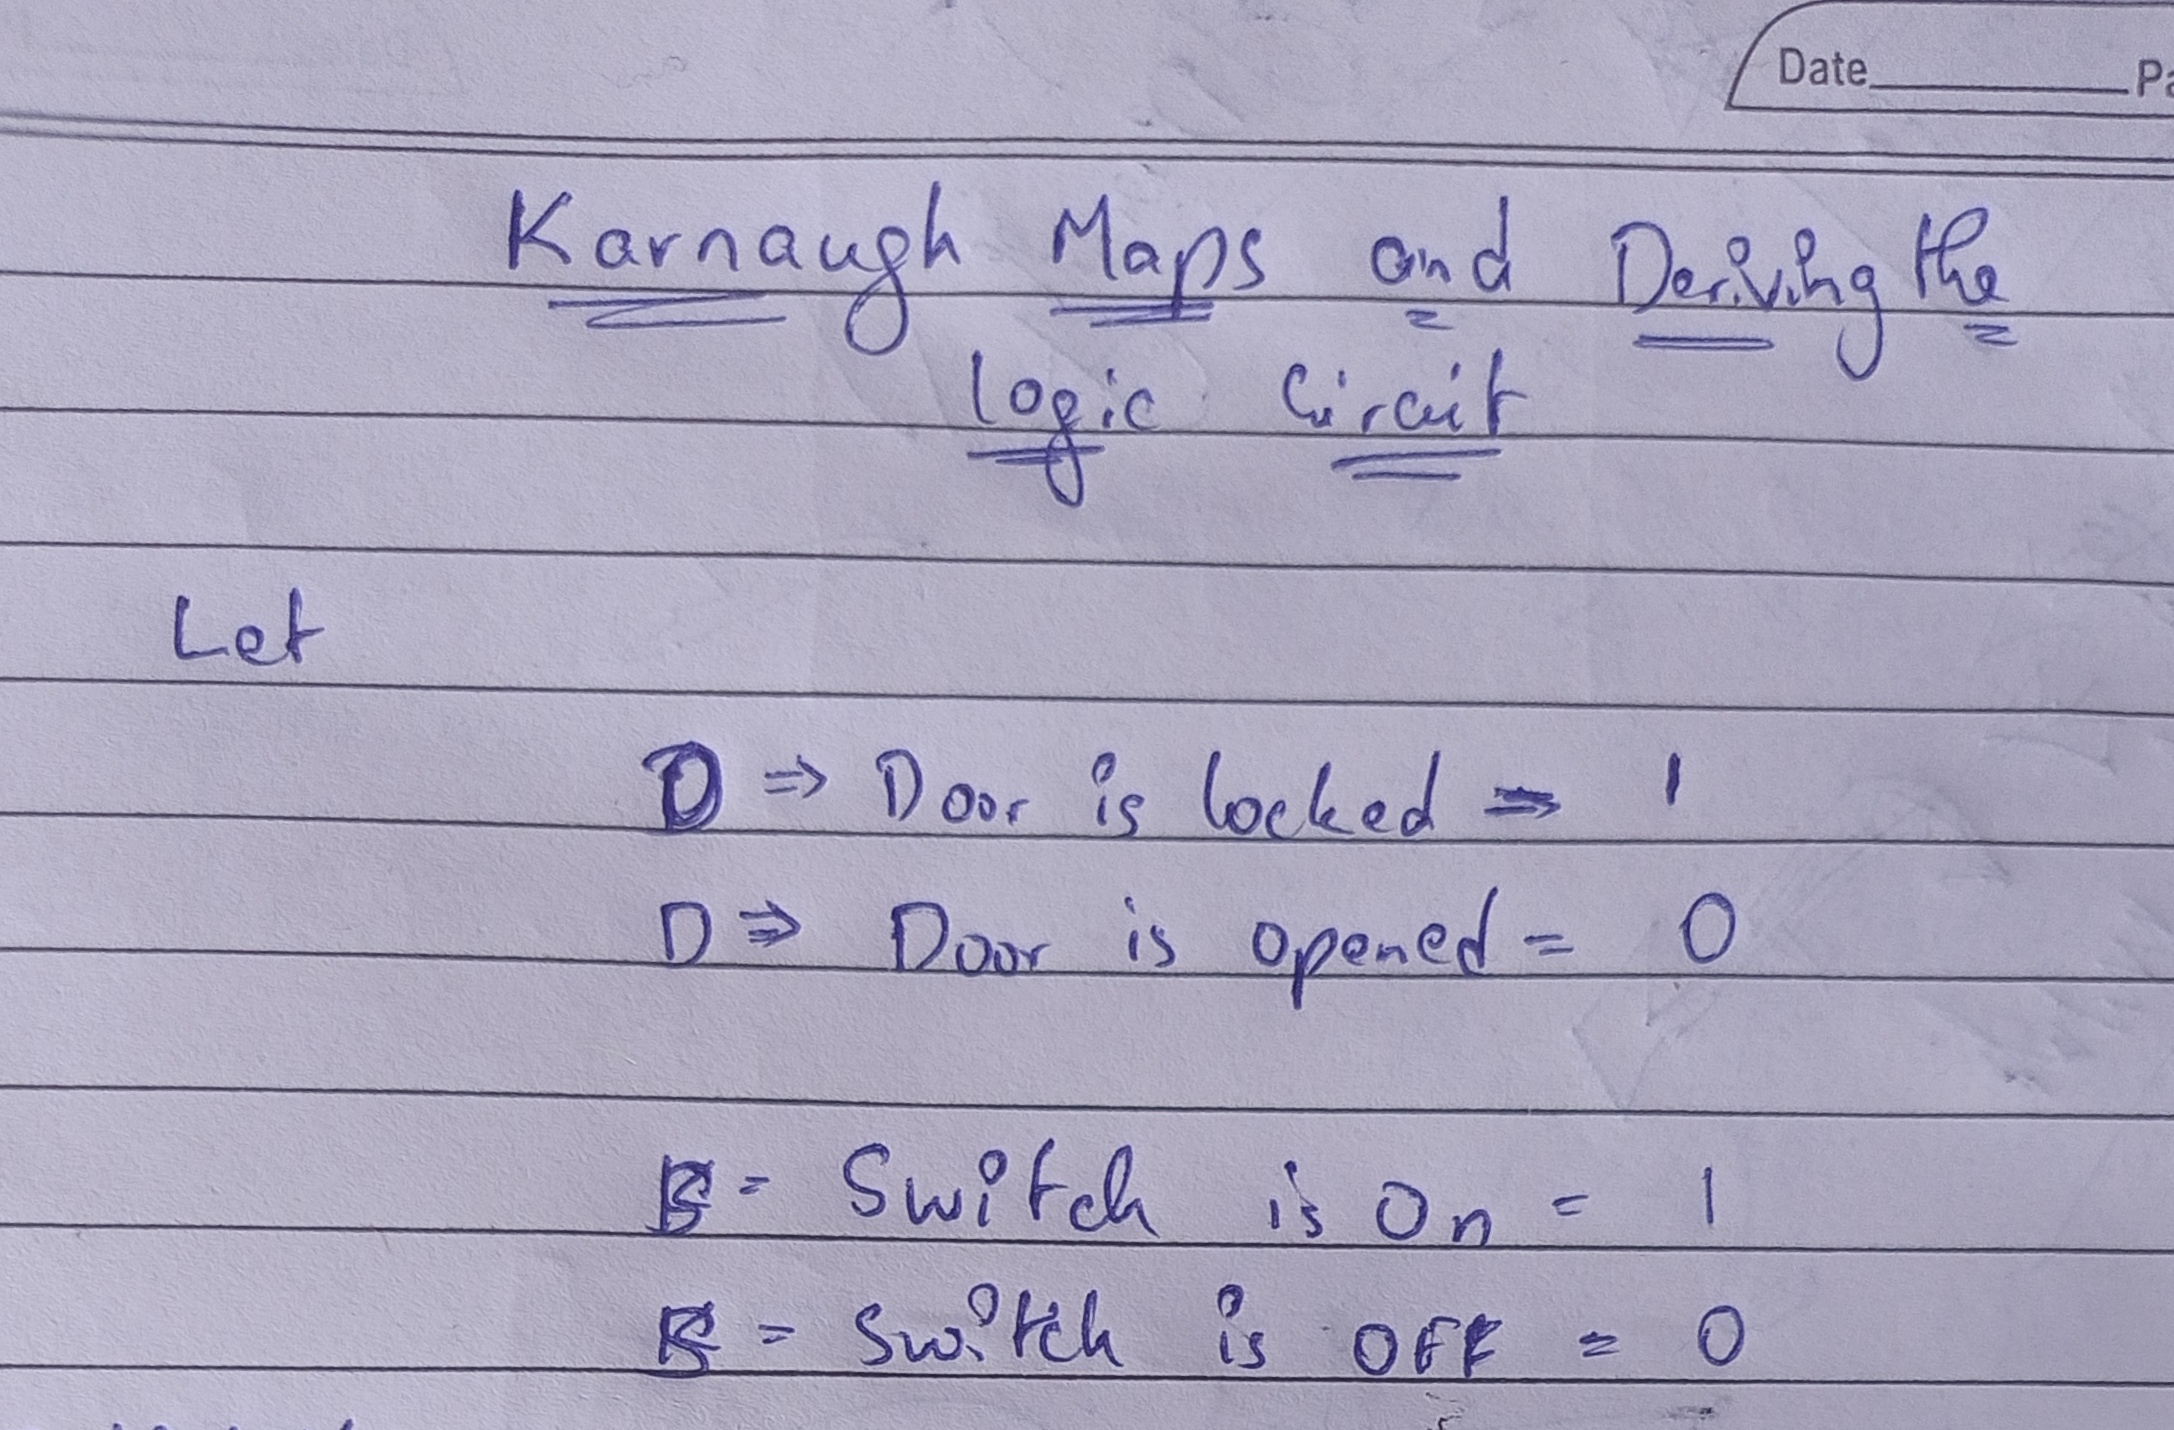 Date Pa
Karnaugh Maps and Deriving the
logic Circuit
Let
D ⇒ Door is locked = 1
D ⇒ Door is opened = 0
S = Switch is On = 1
S = Switch is OFF = 0